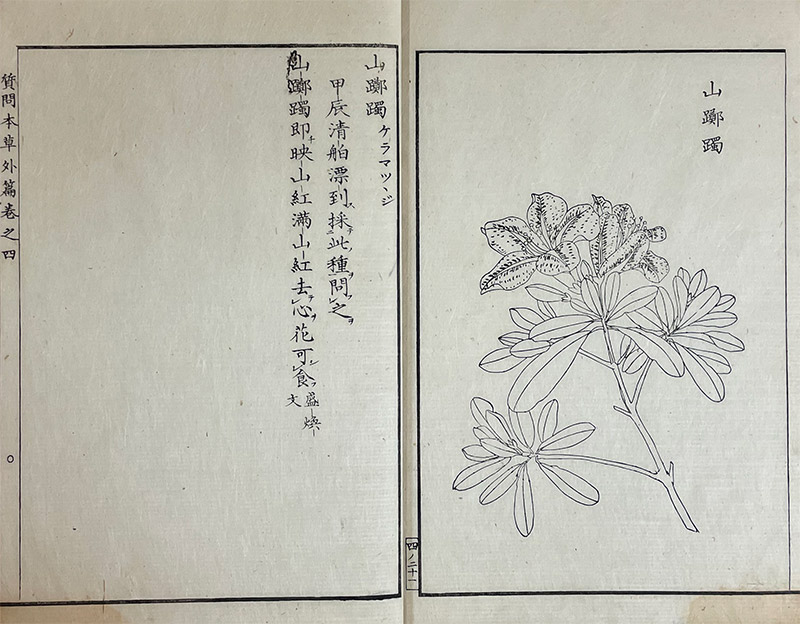 山躑躅
四ノ二十一
山躑躅 ケラマツヽジ
甲辰清舶漂到採此種問之
山躑躅即映山紅満山紅去心花可食 盛煥文
質問本草外篇巻之四